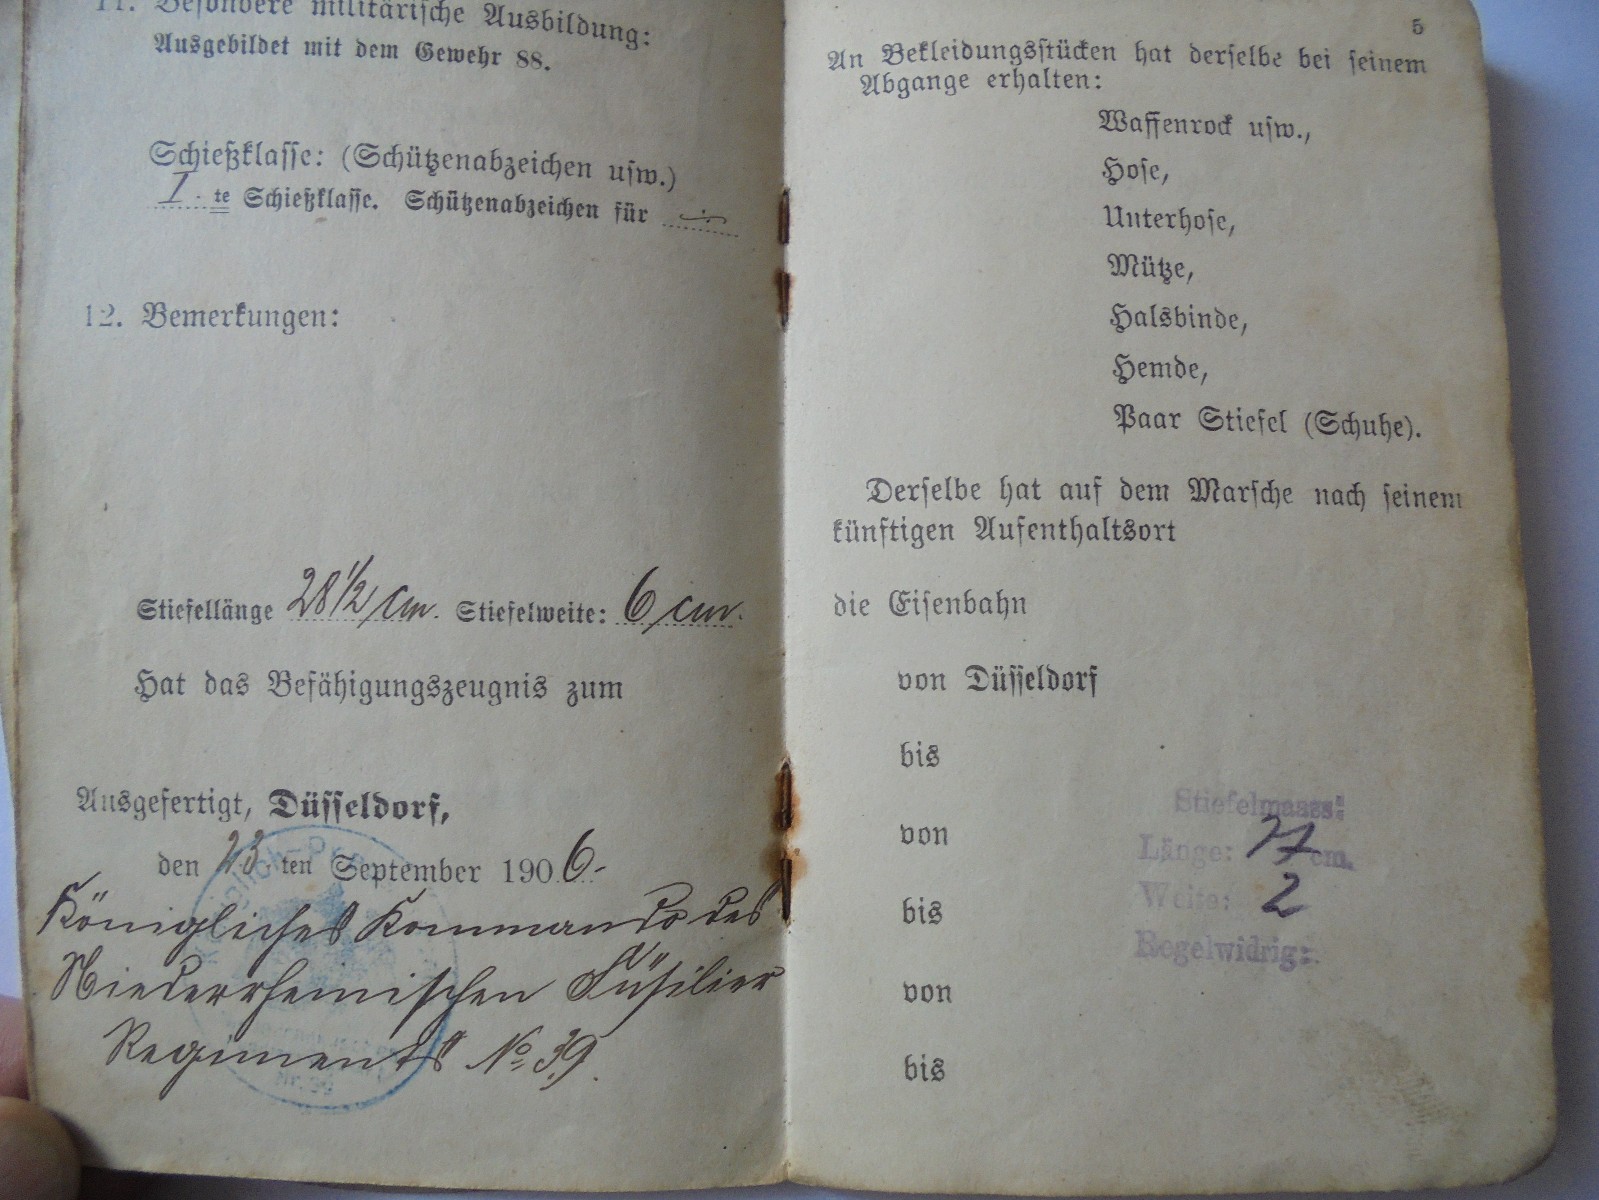 11. Besondere militärische Ausbildung:
Ausgebildet mit dem Gewehr 88.
Schießklasse: (Schützenabzeichen usw.)
I. te Schießklasse. Schützenabzeichen für
12. Bemerkungen:
Stiefellänge 28 1/2 cm. Stiefelweite: 6 cm.
Hat das Befähigungszeugnis zum
Ausgefertigt, Düsseldorf,
den 23. ten September 1906.
Königliches Kommando des
Niederrheinischen Füsilier
Regiments No 39.
5
An Bekleidungsstücken hat derselbe bei seinem
Abgange erhalten:
Waffenrock usw.,
Hose,
Unterhose,
Mütze,
Halsbinde,
Hemde,
Paar Stiefel (Schuhe).
Derselbe hat auf dem Marsche nach seinem
künftigen Aufenthaltsort
die Eisenbahn
von Düsseldorf
bis
von
bis
von
bis
Stiefelmaass:
Länge: 27 cm.
Weite: 2
Regelwidrig: